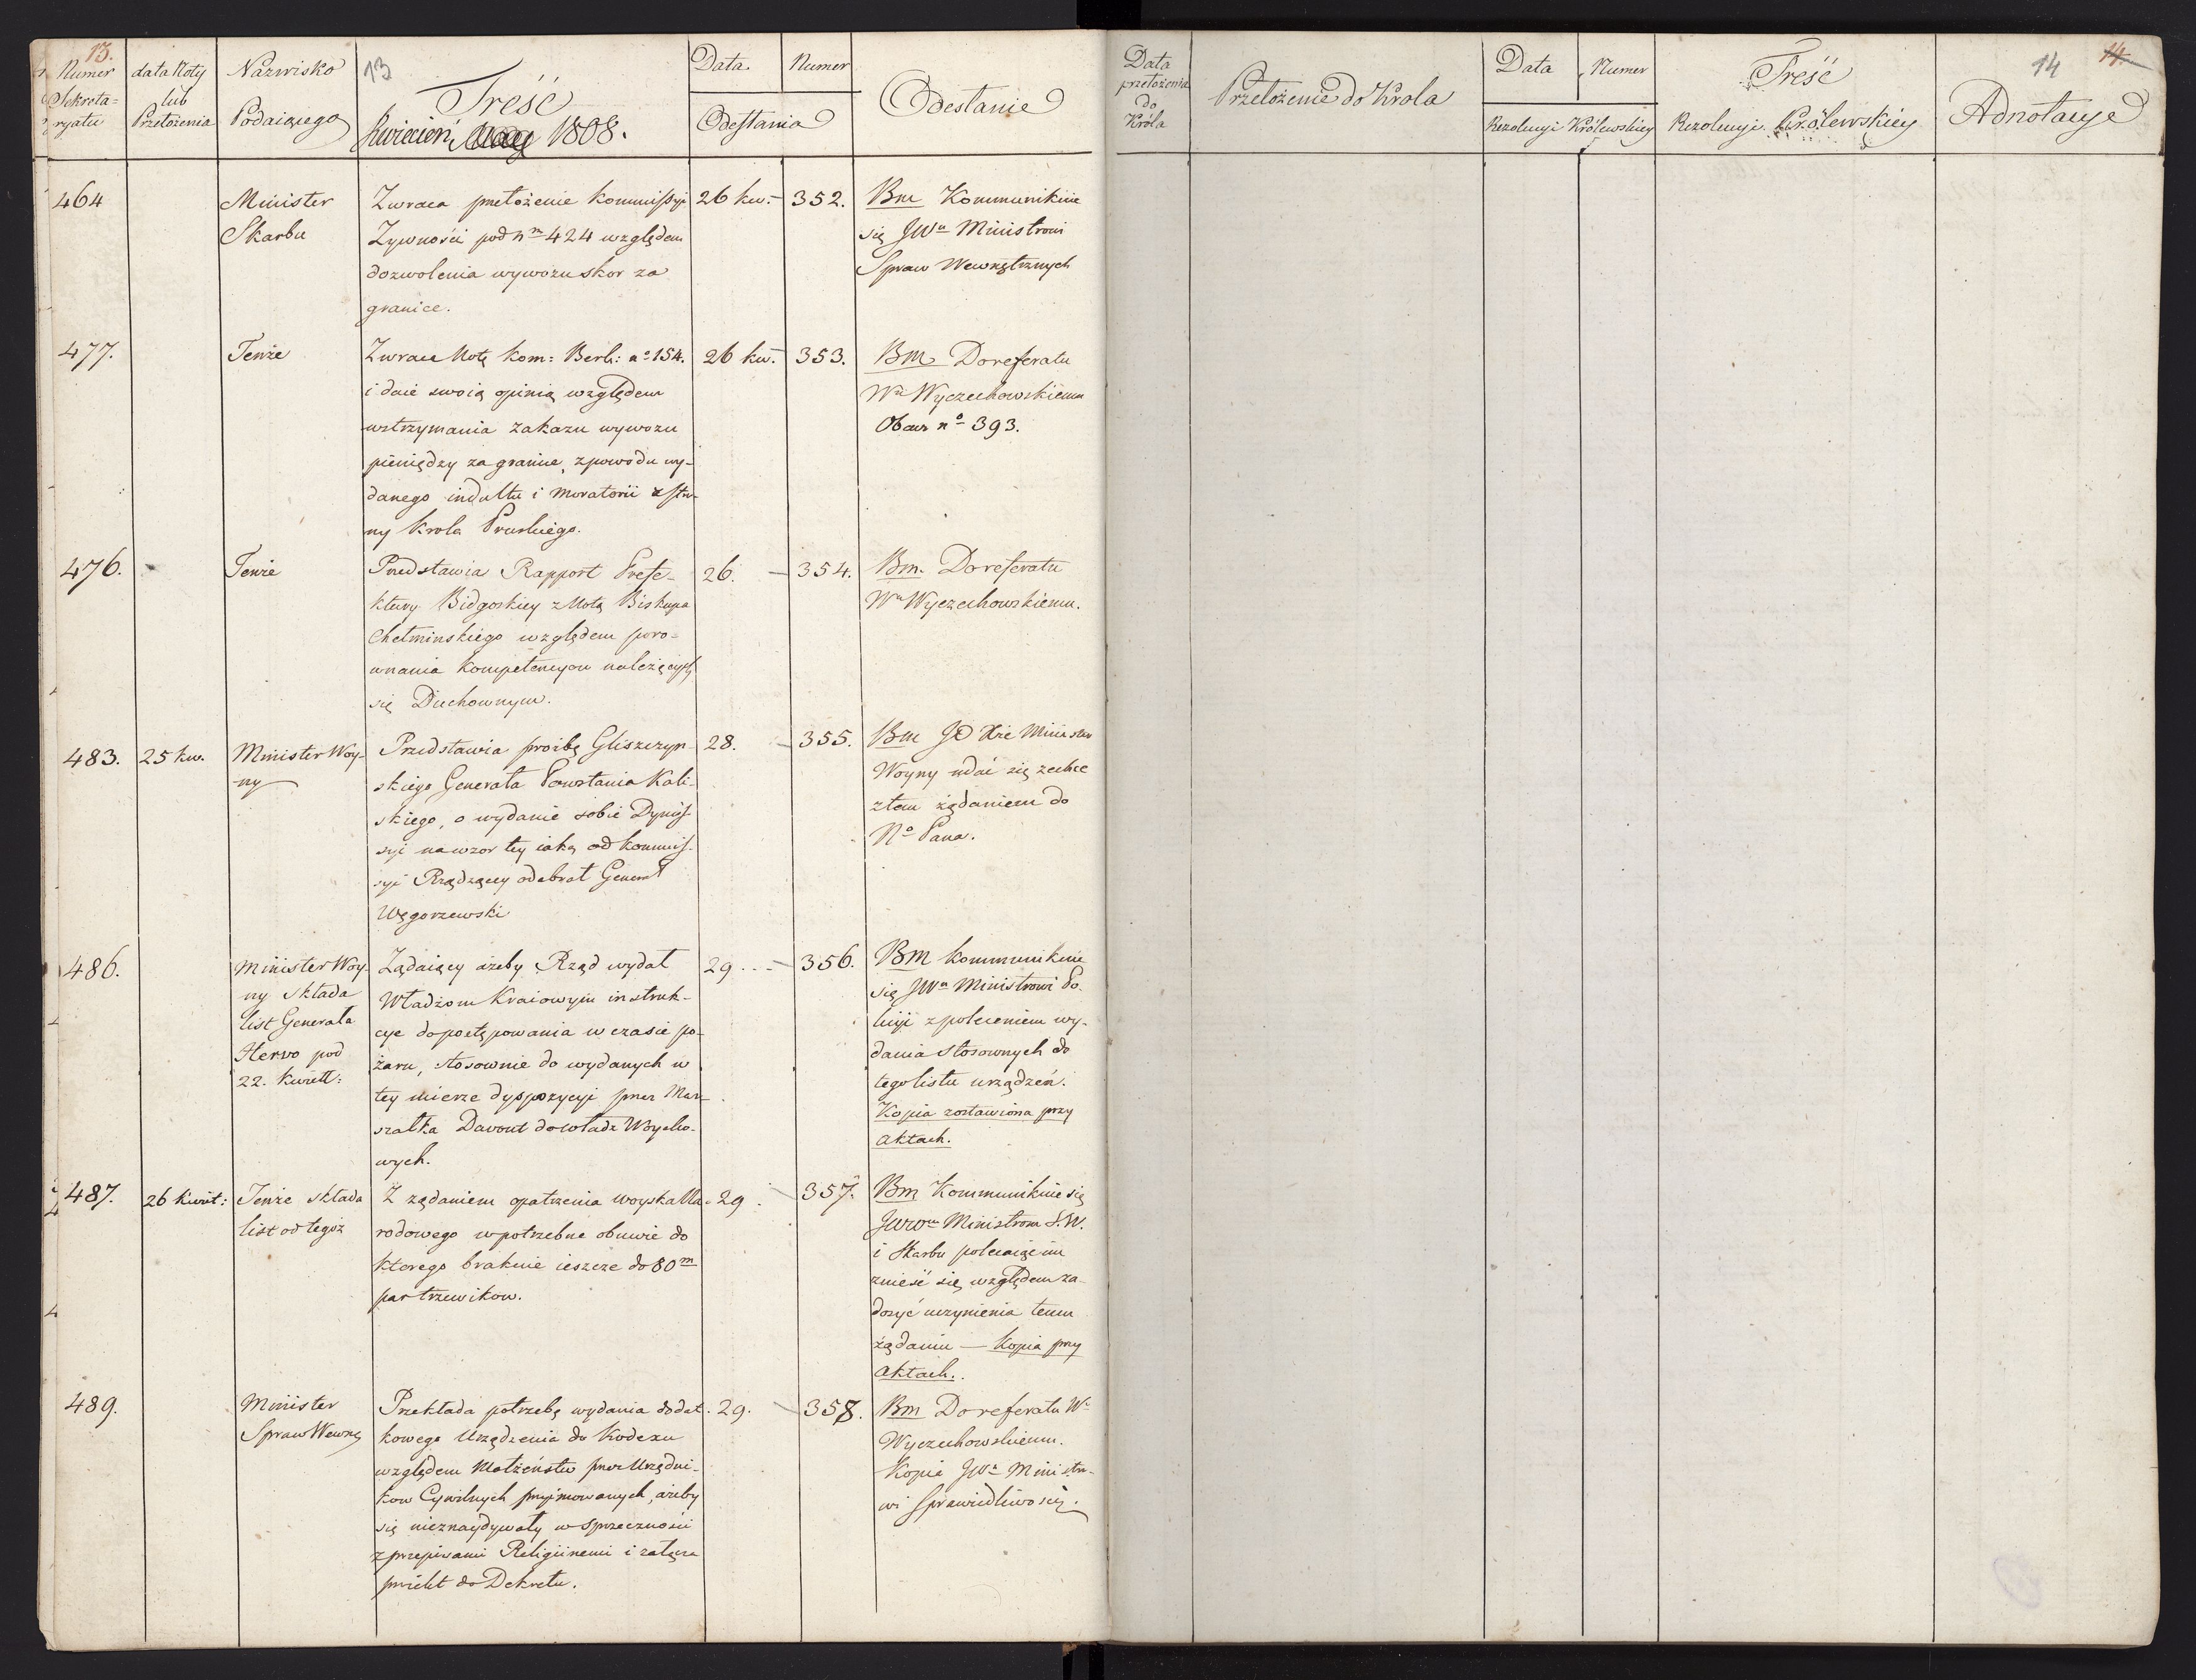 13.
Numer
Sekreta=
ryatu
data Noty
lub
Przełożenia
Nazwisko
Podaiącego
13
Treść
Kwiecień 1808.
Data
Numer
Odesłania
Odesłanie
464
Minister
Skarbu
Zwraca przełożenie kommissyi
Zywności pod nm 424 względem
dozwolenia wywozu skor za
granice.
26 kw. – 352.
Bm Kommunikuie
się JWu Ministrowi
Spraw Wewnętrznych
477.
Tenże
Zwraca Notę kom: Berl: no 154.
i daie swoią opinią względem
wstrzymania zakazu wywozu
pieniędzy za granice, z powodu wy-
danego indultu i moratorii z stro-
ny Krola Pruskiego.
26 kw. – 353.
BM Do referatu
Wu Wyczechowskiemu
Obacz no 393.
476.
Tenże
Przedstawia Rapport Prefe-
ktury Bidgoskiey z Notą Biskupa
Chełminskiego względem poro=
wnania kompetencyow należących
się Duchownym.
26. – 354.
Bm. Do referatu
Wu Wyczechowskiemu.
483.
25 kw.
Minister Woy-
ny
Przedstawia proźbę Gliszczyn-
skiego Generała Powstania Kali-
skiego, o wydanie sobie Dymis-
syi na wzor tey iaką od kommis-
syi Rządzącey odebrał Generał
Węgorzewski
28. – 355.
Bm JO Xże Minister
Woyny udać się zechce
z tem żądaniem do
No Pana.
486.
Minister Woy-
ny składa
list Generała
Hervo pod
22. Kwiett:
Ządaiący ażeby Rząd wydał
Władzom Kraiowym instruk-
cye do postępowania w czasie po-
żaru, stosownie do wydanych w
tey mierze dyspozycyi przez Mar-
szałka Davout do władz Woysko-
wych.
29 ... – 356.
BM kommunikuie
się JWu Ministrowi Po-
licyi z poleceniem wy-
dania stosownych do
tego listu urządzeń.
Kopia zostawiona przy
aktach.
487.
26 Kwiet:
Tenże składa
list od tegoż
Z żądaniem opatrzenia woyska Na-
rodowego w potrzebne obuwie do
ktorego brakuie ieszcze do 80m
par trzewikow.
29 – 357.
Bm Kommunikuie się
JWWm Ministrom S. W.
i Skarbu polecaiąc im
znieść się względem za-
dosyć uczynienia temu
żądaniu — Kopia przy
aktach.
489.
Minister
Spraw Wewnę
Przekłada potrzebę wydania dodat-
kowego Urządzenia do Kodexu
względem Małżeństw przez Urzędni-
kow Cywilnych przyjmowanych, ażeby
się nieznaydywały w sprzeczności
z przepisami Religiinemi i załącza
proiekt do Dekretu.
29. – 358.
Bm Do referatu Wu
Wyczechowskiemu.
Kopia JWu Ministro-
wi Sprawiedliwości.
Data
przełożenia
do
Króla
Przełożenie do Krola
Data
Numer
Rezolucyi Królewskiey
Treść
Rezolucyi Królewskiey
14 14
Adnotacye